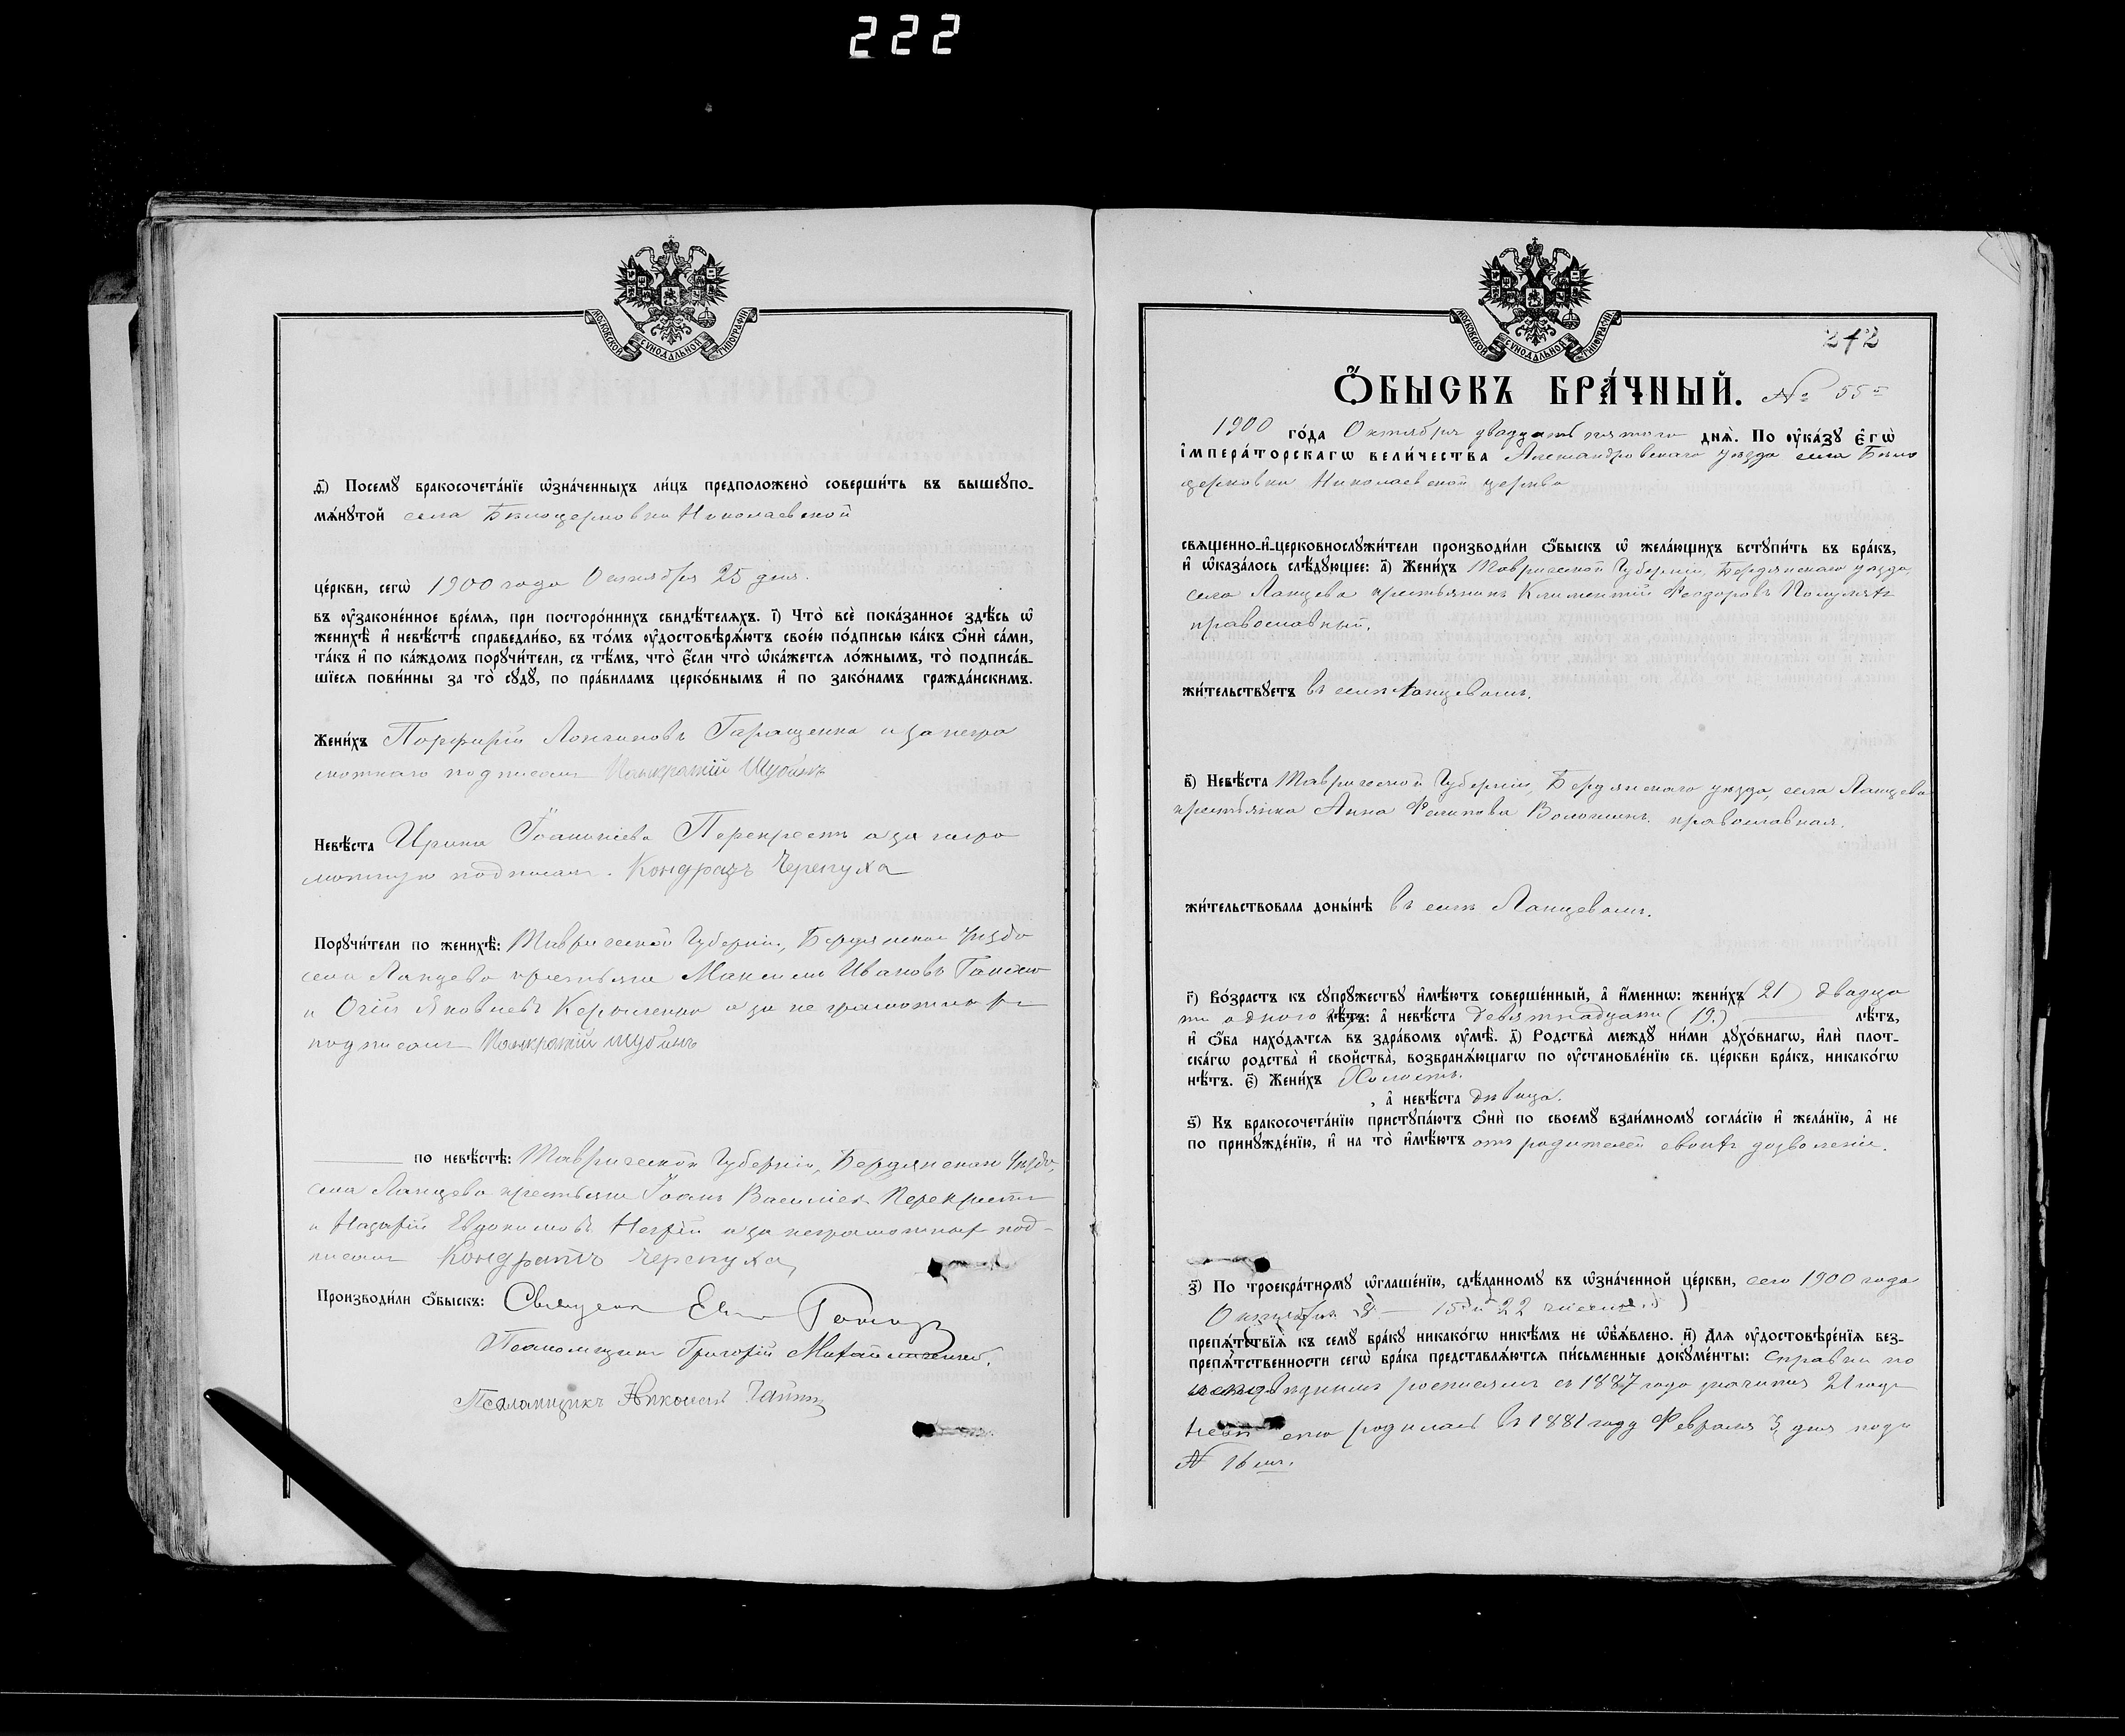 222
МОСКОВСКОЙ СѴНОДАЛЬНОЙ ТИПОГРАФІИ
ѳ҃) Посемꙋ бракосочета́нїе ѡ҆зна́ченныхъ ли́цъ предположено̀ соверши́ть въ вышеꙋпо-
мѧ́нꙋтой села Бѣлоцерковки Николаевской
це́ркви, сегѡ̀ 1900 года Октября 25 дня.
въ ᲂу҆зако́ненное вре́мѧ, при посторо́ннихъ свидѣ́телѧхъ. і҃) Что̀ всѐ пока́занное здѣ́сь ѡ҆
женихѣ̀ и҆ невѣ́стѣ справедли́во, въ то́мъ ᲂу҆достовѣрѧ́ютъ свое́ю по́дписью ка́къ ѻ҆нѝ са́ми,
та́къ и҆ по ка́ждомъ порꙋчи́тели, съ тѣ́мъ, что̀ є҆́сли что̀ ѡ҆ка́жетсѧ ло́жнымъ, то̀ подписа́в-
шїесѧ пови́нны за то̀ сꙋдꙋ̀, по пра́виламъ церко́внымъ и҆ по зако́намъ гражда́нскимъ.
Жени́хъ Порфирій Гаращенко а за негра
мотнаго подписался Панкратій Шубинъ
Невѣ́ста Ирина Перекрестъ а за негра
мотную подписался. Кондратъ Черепуха
Порꙋчи́тели по женихѣ̀: Таврической Губерніи, Бердянскаго Уѣзда
села Ланцева крестьяне Максимъ Ивановъ
и Яковлевъ а за неграмотныхъ
подписался Панкратій Шубинъ
по невѣ́стѣ: Таврической Губерніи, Бердянскаго Уѣзда,
села Ланцева крестьяне Іоанъ Василіевъ Перекрестъ
и Назарій Евдокимовъ а за неграмотныхъ под-
писался Кондратъ Черепуха
Производи́ли ѻ҆́быскъ: Священникъ
Псаломщикъ Григорій
Псаломщикъ Николай
МОСКОВСКОЙ СѴНОДАЛЬНОЙ ТИПОГРАФІИ
272
Ѻ҆́БЫСКЪ БРА́ЧНЫЙ. № 55й
1900 го́да Октября двадцать пятаго днѧ̀. По ᲂу҆ка́зꙋ Є҆гѡ̀
І҆мпера́торскагѡ вели́чества Александровскаго уѣзда села Бѣло
церковки Николаевской церкви
свѧще́нно-и҆-церковнослꙋжи́тели производи́ли ѻ҆́быскъ ѡ҆ жела́ющихъ встꙋпи́ть въ бра́къ,
и҆ ѡ҆каза́лось слѣ́дꙋющее: а҃) Жени́хъ Таврической Губерніи, Бердянскаго уѣзда,
села Ланцева крестьянинъ Климентій Феодоровъ
православный.
жи́тельствꙋетъ въ селѣ Ланцевомъ.
в҃) Невѣ́ста Таврической Губерніи, Бердянскаго уѣзда, села Ланцева
крестьянка Анна Филипова православная.
жи́тельствовала доны́нѣ въ селѣ Ланцевомъ.
г҃) Во́зрастъ къ сꙋпрꙋ́жествꙋ и҆мѣ́ютъ соверше́нный, а҆ и҆́меннѡ: жени́хъ (21) двадца
ти одного лѣ́тъ: а҆ невѣ́ста девятнадцати (19.) лѣ́тъ,
и҆ ѻ҆́ба нахо́дѧтсѧ въ здра́вомъ ᲂу҆мѣ̀. д҃) Родства̀ междꙋ̀ ни́ми дꙋхо́внагѡ, и҆лѝ пло́т-
скагѡ родства̀ и҆ свойства̀, возбранѧ́ющагѡ по ᲂу҆становле́нїю св. це́ркви бра́къ, никако́гѡ
нѣ́тъ. є҃) Жени́хъ Холостъ.
, а҆ невѣ́ста дѣвица.
ѕ҃) Къ бракосочета́нїю пристꙋпа́ютъ ѻ҆нѝ по своемꙋ̀ взаи́мномꙋ согла́сїю и҆ жела́нїю, а҆ не
по принꙋжде́нїю, и҆ на то̀ и҆мѣ́ютъ отъ родителей своихъ дозволеніе.
з҃) По троекра́тномꙋ ѡ҆глаше́нїю, сдѣ́ланномꙋ въ ѡ҆зна́ченной це́ркви, сего 1900 года
Октября 8 — 15 и 22 числъ
препѧ́тствїѧ къ семꙋ̀ бра́кꙋ никако́гѡ никѣ́мъ не ѡ҆б̾ѧ́влено. и҃) Для ᲂу҆достовѣре́нїѧ без-
препѧ́тственности сегѡ̀ бра́ка представлѧ́ютсѧ пи́сьменные докꙋме́нты: справки по
исповѣднымъ росписямъ съ 1887 года значится 21 года
Невѣста его родилась въ 1881 году Февраля 3 дня подъ
№ 16 мъ.